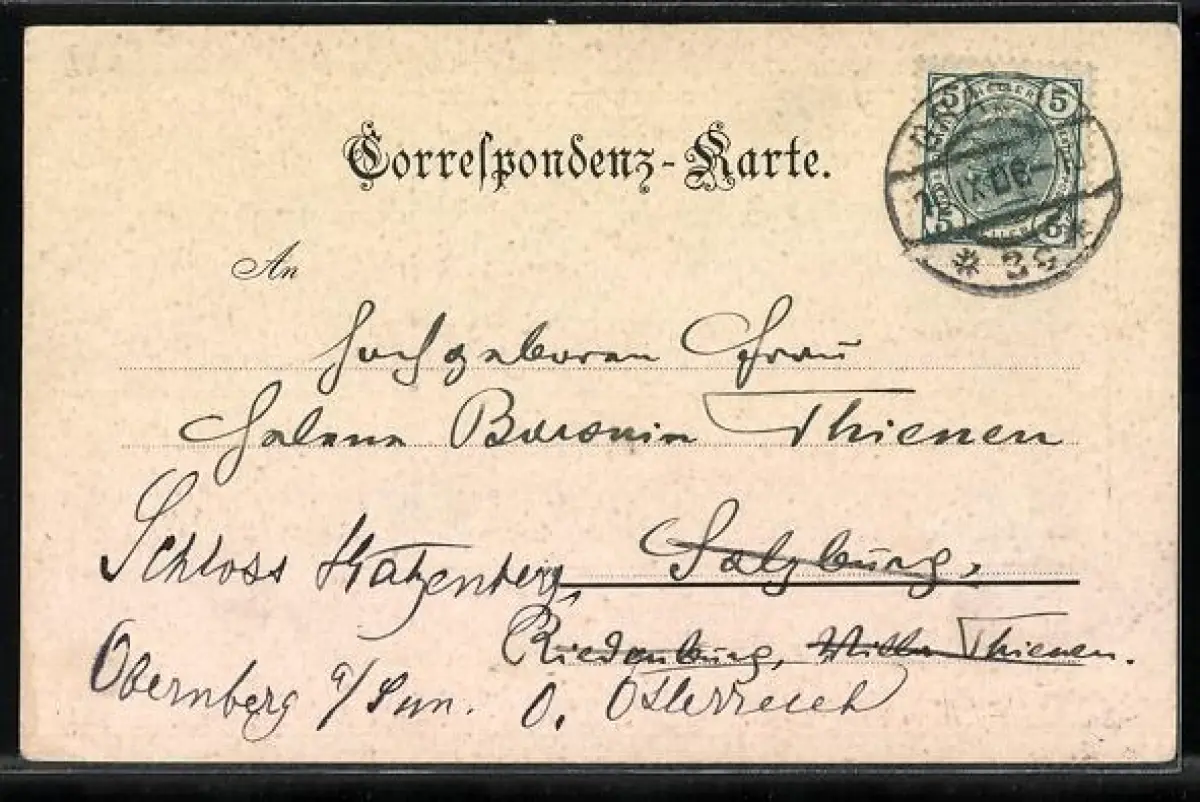 Correspondenz-Karte.
An
Hochgeboren Frau
Helene Baronin Thienen
Salzburg,
Schloss Katzenberg,
Riedenburg, Villa Thienen.
Obernberg a/Inn. O. Österreich
5 5
IX 06
5 5
* 2c *